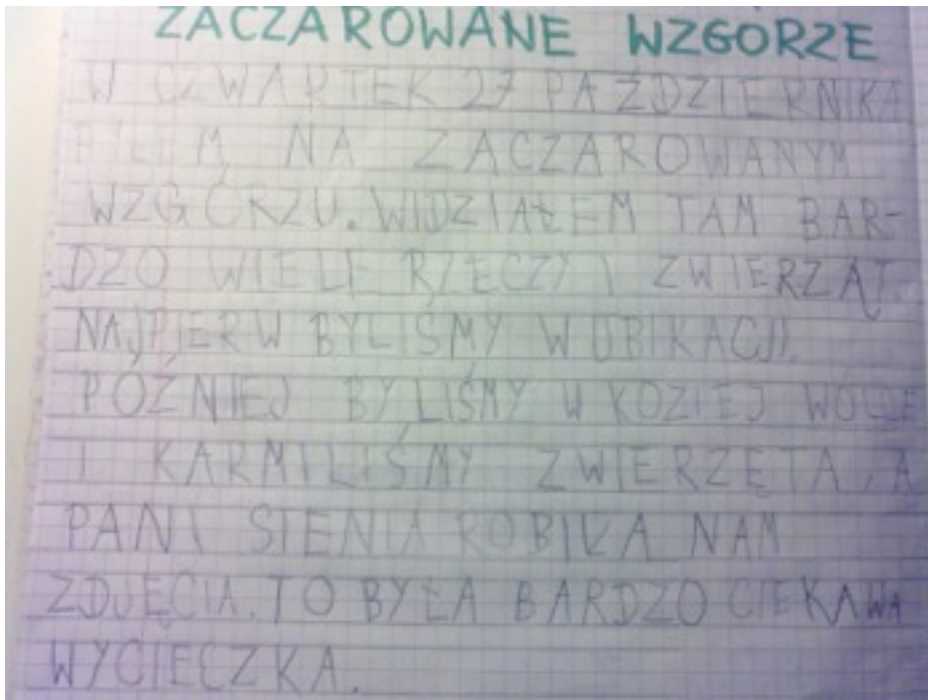 ZACZAROWANE WZGÓRZE
W CZWARTEK 27 PAŹDZIERNIKA
BYŁEM NA ZACZAROWANYM
WZGÓRZU. WIDZIAŁEM TAM BAR-
DZO WIELE RZECZY I ZWIERZĄT.
NAJPIERW BYLIŚMY W UBIKACJI.
PÓŹNIEJ BYLIŚMY W KOZIEJ WÓLCE
I KARMILIŚMY ZWIERZĘTA, A
PANI SIENIA ROBIŁA NAM
ZDJĘCIA. TO BYŁA BARDZO CIEKAWA
WYCIECZKA.